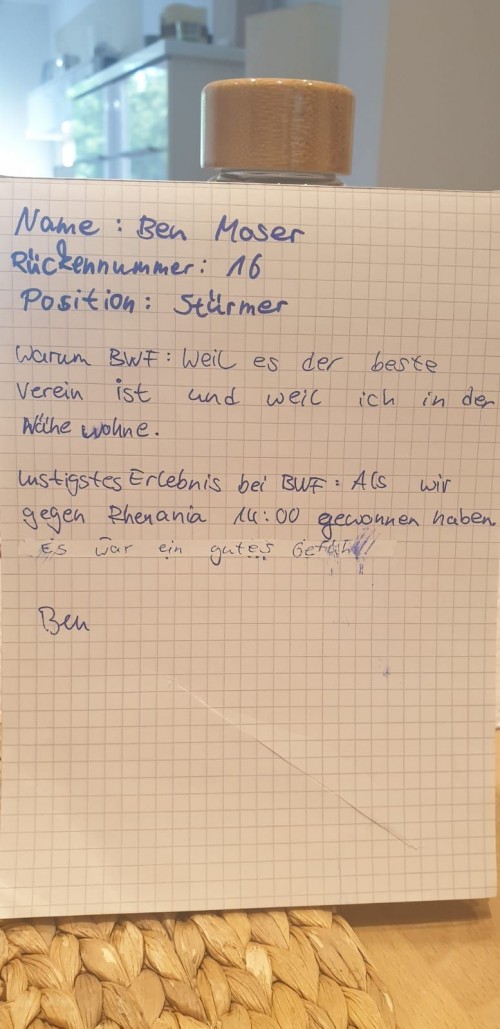 Name : Ben Moser
Rückennummer: 16
Position: Stürmer
Warum BWF: Weil es der beste
Verein ist und weil ich in der
Nähe wohne.
lustigstes Erlebnis bei BWF: Als wir
gegen Rhenania 14:00 gewonnen haben
Es war ein gutes Gefühl!!
Ben